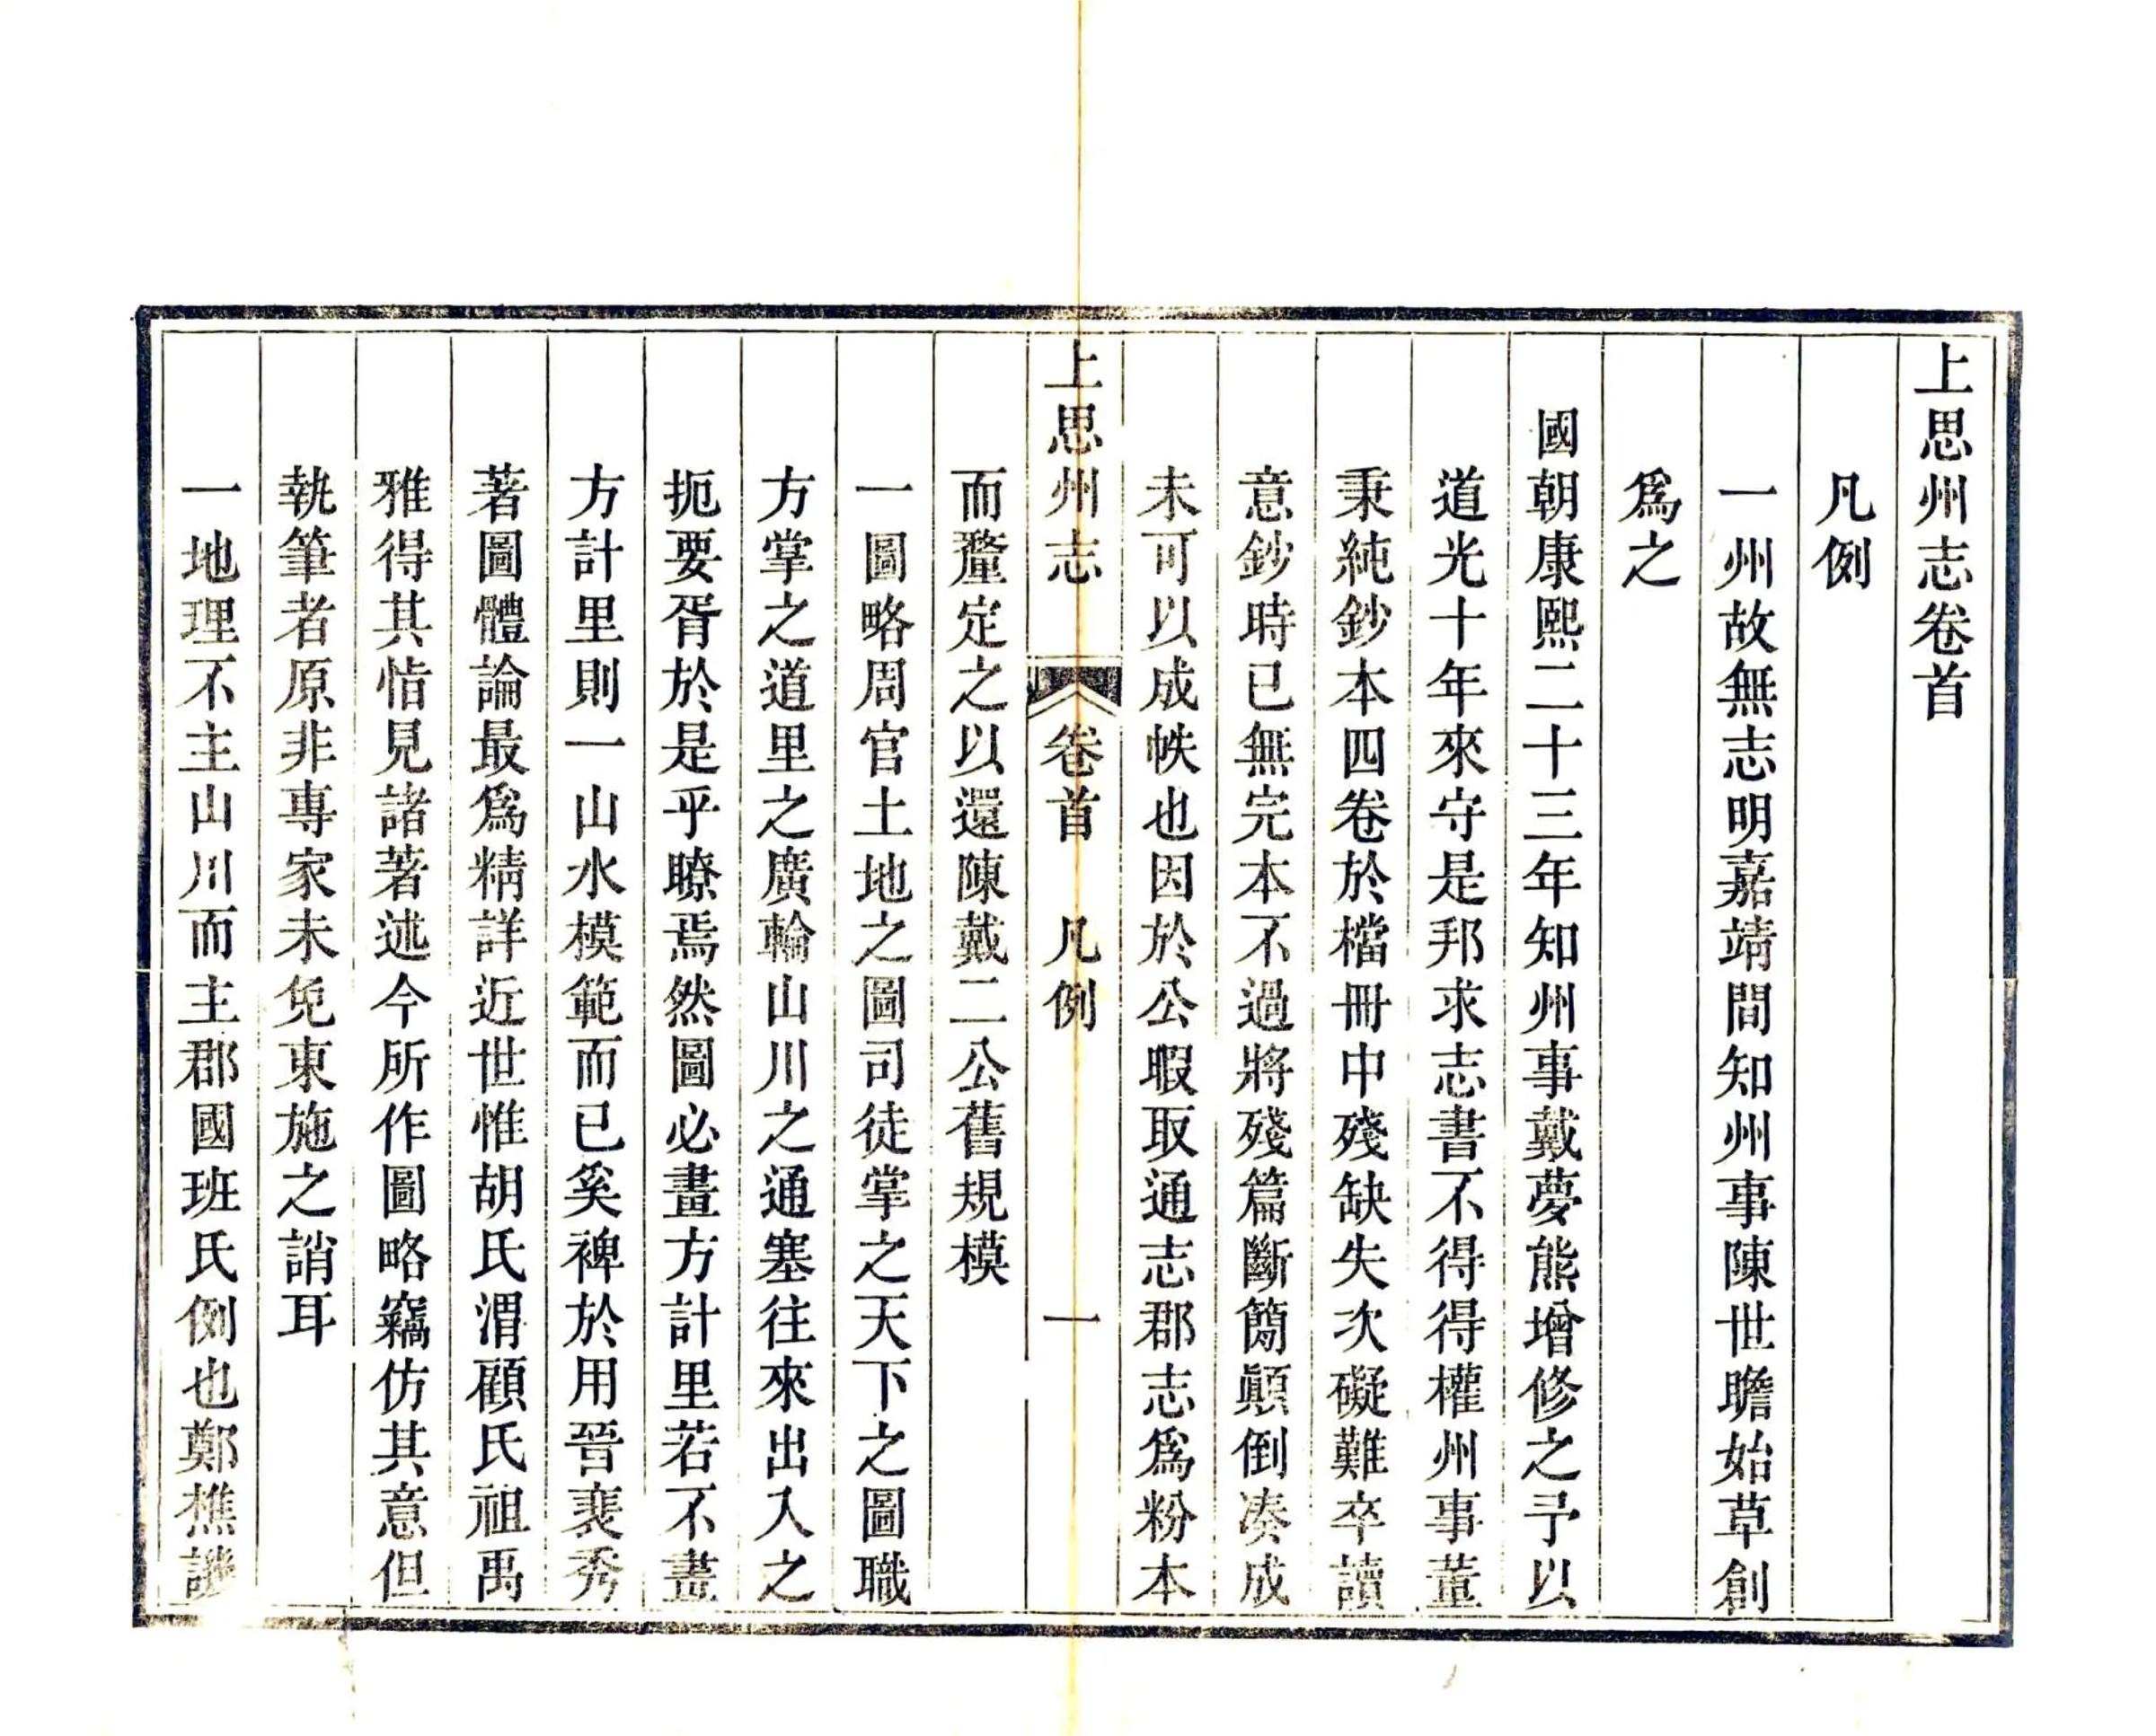 上思州志卷首
凡例
一州故無志明嘉靖間知州事陳世瞻始草創
爲之
國朝康熙二十三年知州事戴夢熊增修之予以
道光十年來守是邦求志書不得得權州事董
秉純鈔本四卷於檔冊中殘缺失次礙難卒讀
意鈔時已無完本不過將殘篇斷簡顛倒凑成
未可以成帙也因於公暇取通志郡志爲粉本
上思州志 卷首 凡例 一
而釐定之以還陳戴二公舊規模
一圖略周官土地之圖司徒掌之天下之圖職
方掌之道里之廣輪山川之通塞往來出入之
扼要胥於是乎瞭焉然圖必畫方計里若不畫
方計里則一山水模範而已奚裨於用晉裴秀
著圖體論最爲精詳近世惟胡氏渭顧氏祖禹
雅得其恉見諸著述今所作圖略竊仿其意但
執筆者原非專家未免東施之誚耳
一地理不主山川而主郡國班氏例也鄭樵譏